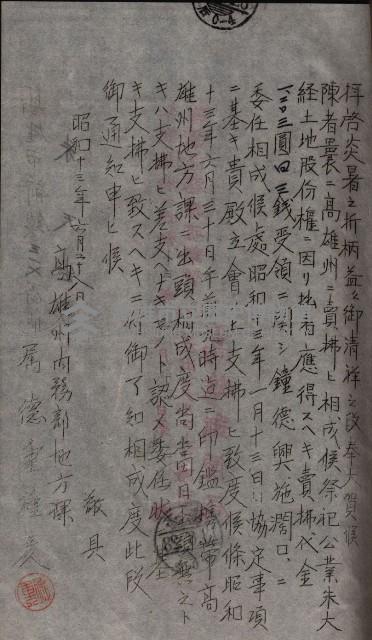 拝啓炎暑之折柄益々御清祥之段奉大賀候
陳者曩ニ高雄州ニ賣拂ヒ相成候祭祀公業朱大
経土地股份權ニ因リ 應得スヘキ賣拂代金
圓 三錢受領ニ関シ鐘德興施濶口ニ
委任相成候處昭和十三年一月十三日 協定事項
ニ基キ貴殿立會ノ上支拂ヒ致度候條昭和
十三年六月三十日午前 時迄ニ印鑑携帯高
雄州地方課ニ出頭相成度尚當日 無之ト
キハ支拂ヒ差支ヘナキモノト認メ委任状
キ支拂ヒ致スヘキニ付御了知相成度此段
御通知申上候
敬具
昭和十三年六月二十八日
高雄州内務部地方課
屬 德重